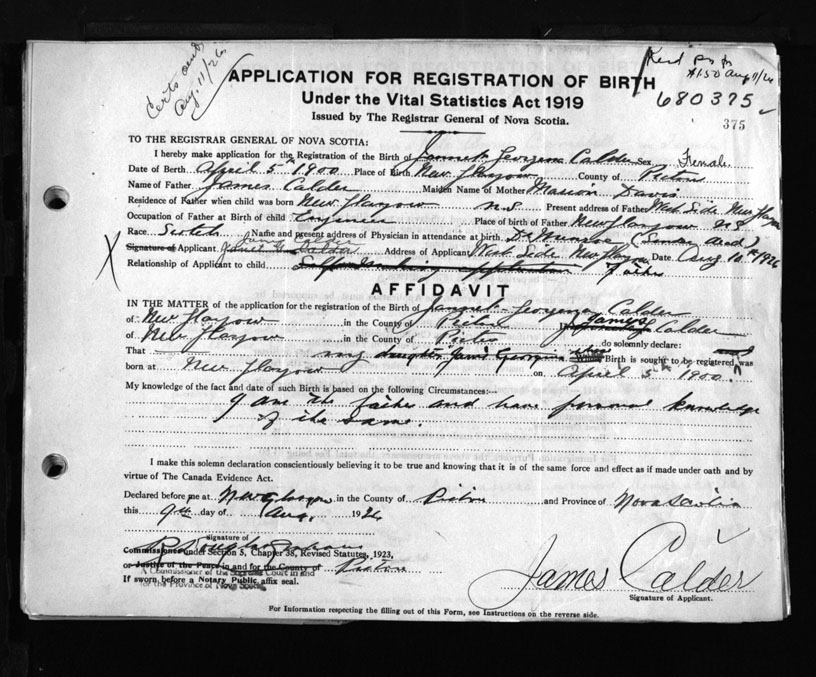 Certs and Aug. 11/26
$1.50 Aug 11/26
APPLICATION FOR REGISTRATION OF BIRTH
680375
Under the Vital Statistics Act 1919
375
Issued by The Registrar General of Nova Scotia.
TO THE REGISTRAR GENERAL OF NOVA SCOTIA:
I hereby make application for the Registration of the Birth of Jannet Georgena Calder Sex Female
Date of Birth April 5th 1900 Place of Birth New Glasgow County of Pictou
Name of Father James Calder Maiden Name of Mother Marion Davis
Residence of Father when child was born New Glasgow N.S. Present address of Father West Side New Glasgow
Occupation of Father at Birth of child Engineer Place of birth of Father New Glasgow N S
Race Scotch Name and present address of Physician in attendance at birth Dr Munroe
Signature of Applicant Address of Applicant West Side New Glasgow Date Aug 10th 1926
Relationship of Applicant to child Father
AFFIDAVIT
IN THE MATTER of the application for the registration of Birth of Jannet Georgena Calder
of New Glasgow in the County of Pictou I James Calder
of New Glasgow in the County of Pictou do solemnly declare:
That my daughter Georgina who Birth is sought to be registered and was
born at New Glasgow on April 5th 1900
My knowledge of the fact and date of such Birth is based on the following Circumstances:—
I am the father and have personal knowledge
of the same.
I make this solemn declaration conscientiously believing it to be true and knowing that it is of the same force and effect as if made under oath and by
virtue of The Canada Evidence Act.
Declared before me at New Glasgow in the County of Pictou and Province of Nova Scotia
this 9th day of Aug. 1926
signature of
Commissioner under Section 5, Chapter 38, Revised Statutes, 1923,
or Justice of the Peace in and for the County of Pictou
A Commissioner of the Supreme Court in and
for the Province of Nova Scotia
If sworn before a Notary Public affix seal.
James Calder
Signature of Applicant.
For Information respecting the filling out of this Form, see Instructions on the reverse side.